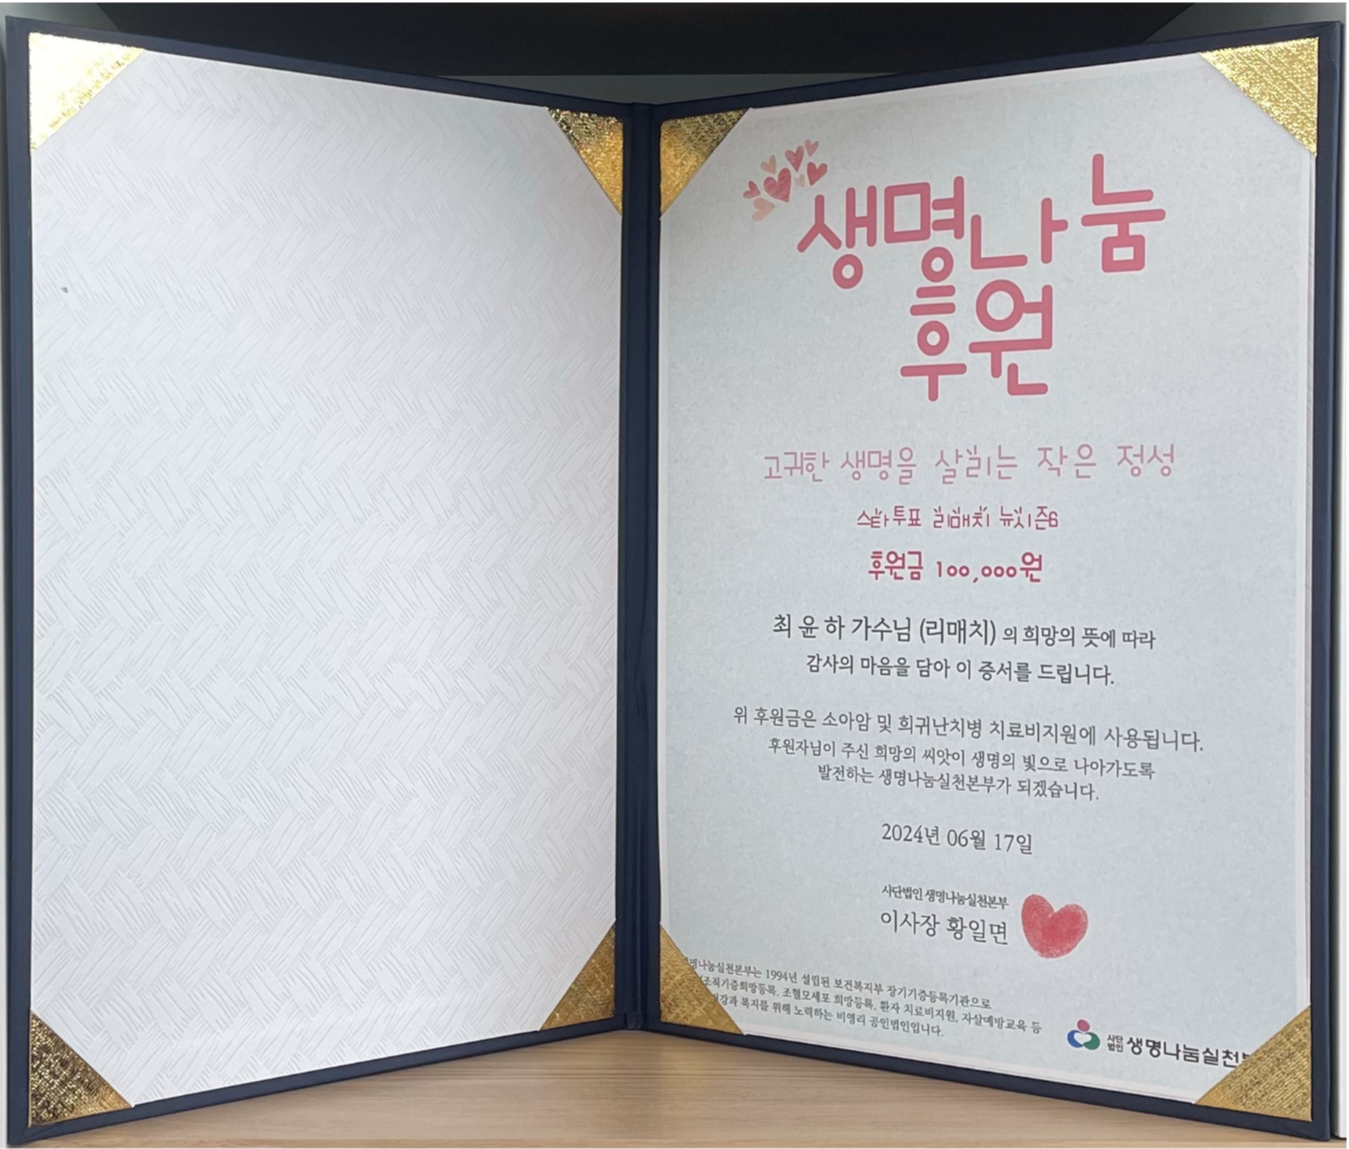 생명나눔
후원
고귀한 생명을 살리는 작은 정성
스타투표 리매치 뉴시즌6
후원금 100,000원
최 윤 하 가수님 (리매치) 의 희망의 뜻에 따라
감사의 마음을 담아 이 증서를 드립니다.
위 후원금은 소아암 및 희귀난치병 치료비지원에 사용됩니다.
후원자님이 주신 희망의 씨앗이 생명의 빛으로 나아가도록
발전하는 생명나눔실천본부가 되겠습니다.
2024년 06월 17일
사단법인 생명나눔실천본부
이사장 황일면
명나눔실천본부는 1994년 설립된 보건복지부 장기기증등록기관으로
조직기증희망등록, 조혈모세포 희망등록, 환자 치료비지원, 자살예방교육 등
복지를 위해 노력하는 비영리 공인법인입니다.
사단
법인 생명나눔실천